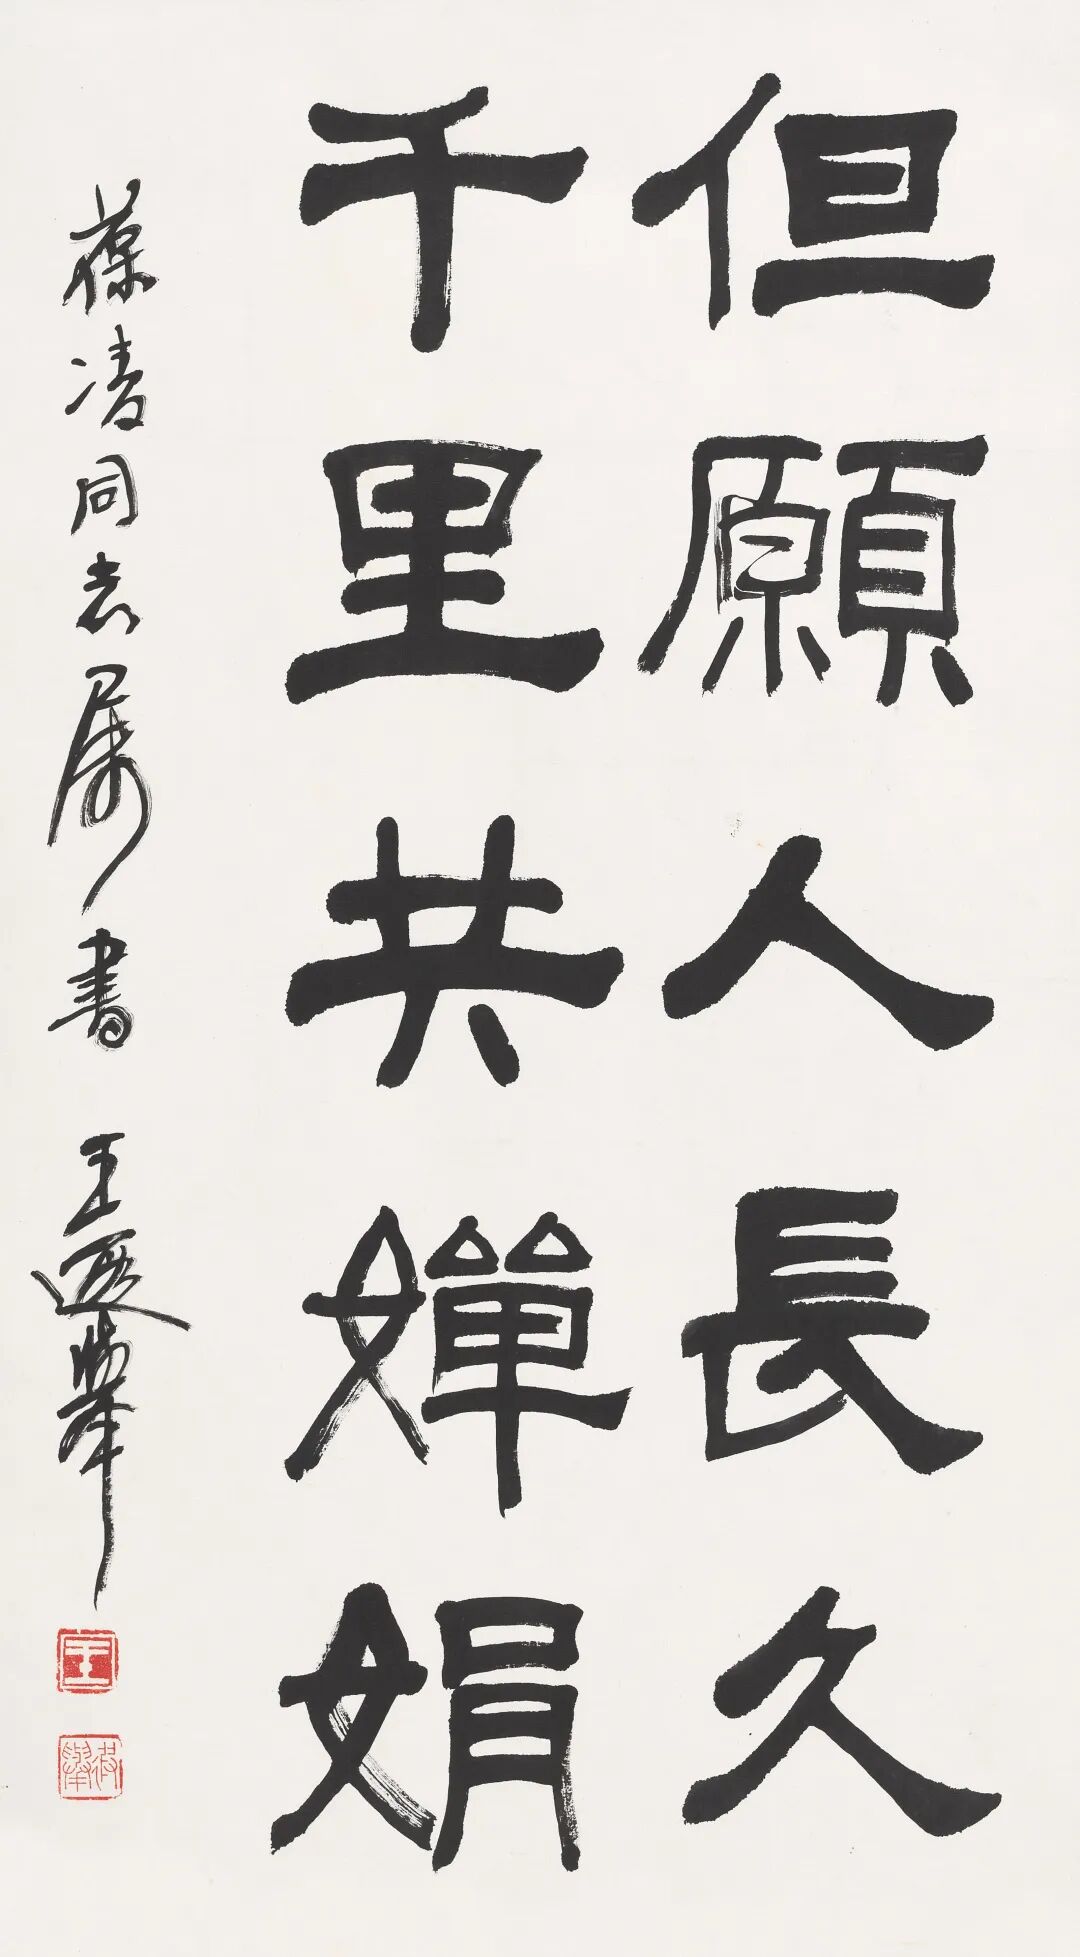 但願人長久
千里共嬋娟
葆清同志属書 王遐舉
王
遐舉